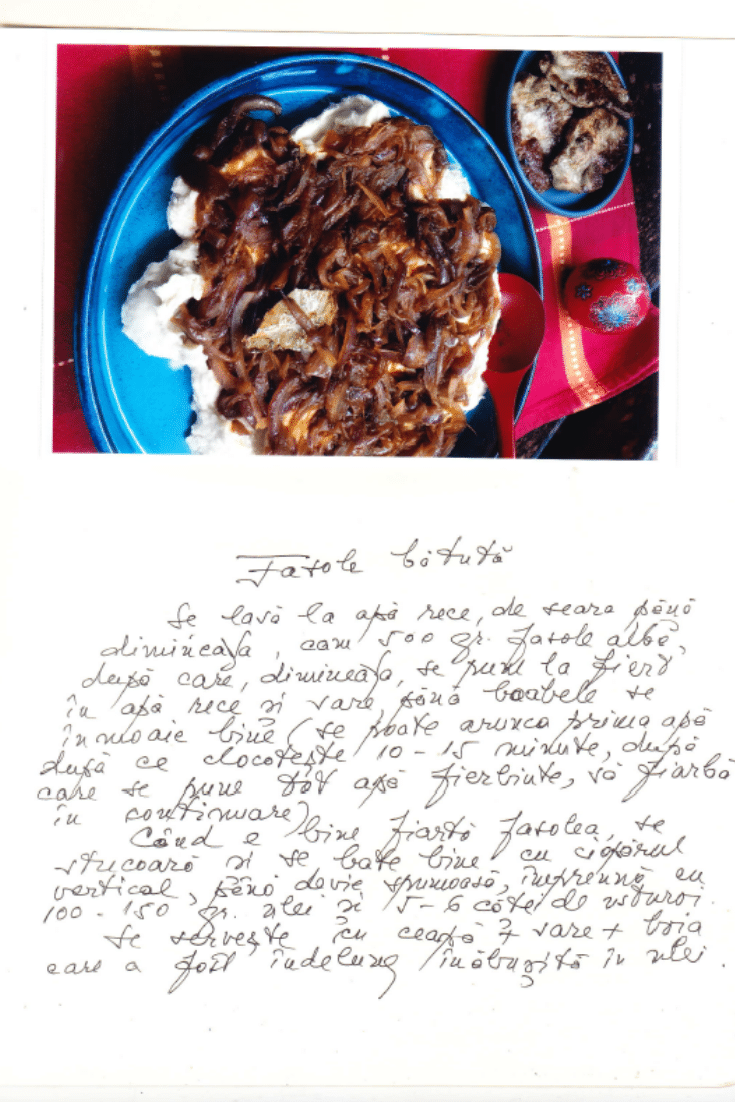 Fasole bătută
Se lasă la apă rece, de seara până
dimineața, cam 500 gr. fasole albă,
după care, dimineața, se pune la fiert
în apă rece și sare, până boabele se
înmoaie bine (se poate arunca prima apă
după ce clocotește 10-15 minute, după
care se pune tot apă fierbinte, să fiarbă
în continuare)
Când e bine fiartă fasolea, se
strecoară și se bate bine cu
vertical, până devie spumoasă, împreună cu
100-150 gr. ulei și 5-6 căței de usturoi.
Se servește cu ceapă + sare + boia
care a fost îndelung înăbușită în ulei.